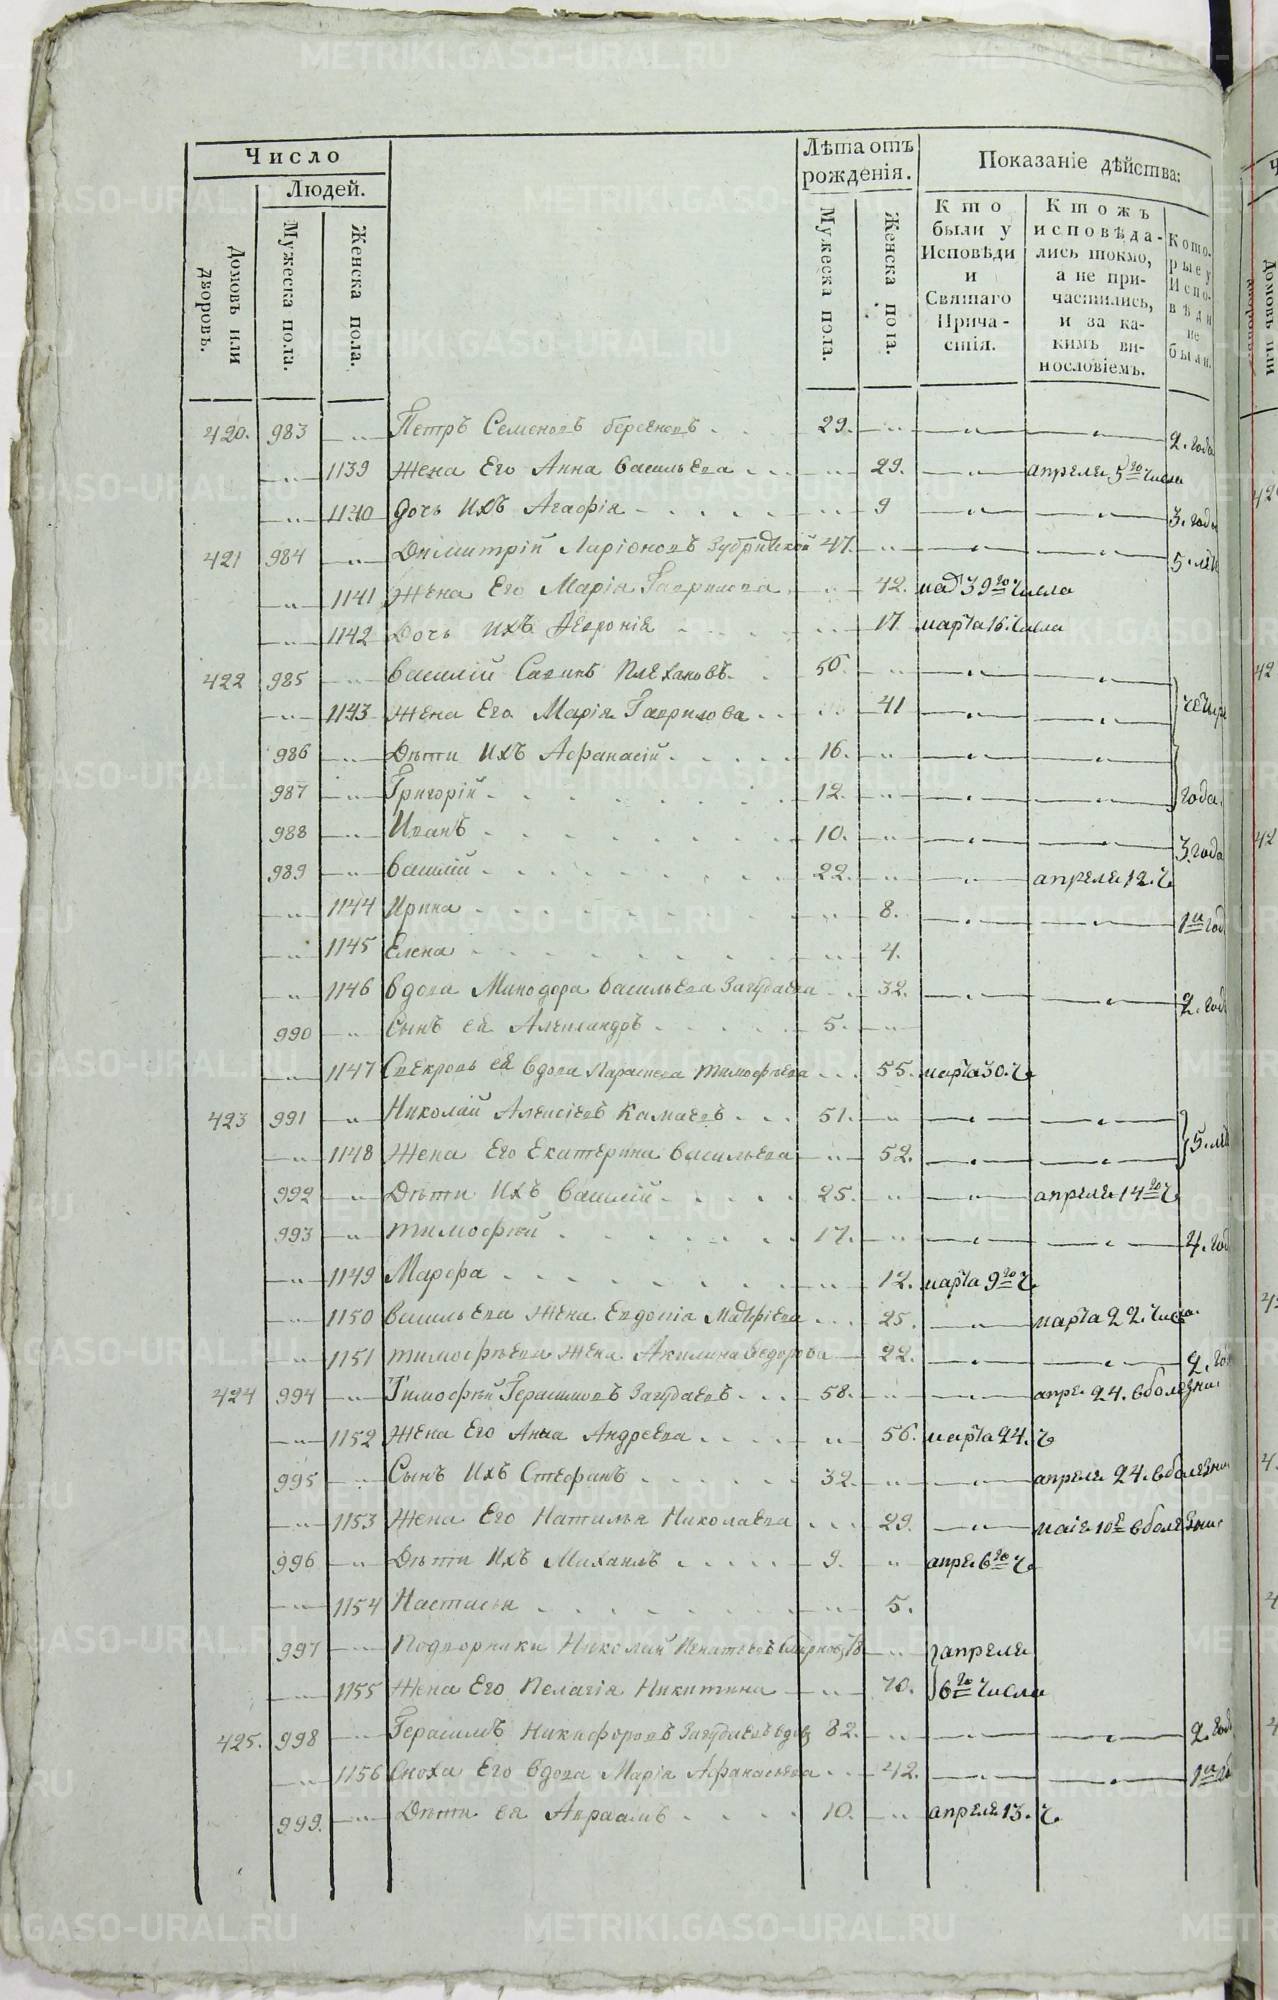 Число
Людей.
Домовъ или дворовъ.
Мужеска пола.
Женска пола.
Лѣта отъ рожденія.
Мужеска пола.
Женска пола.
Показаніе дѣйства:
Кто были у Исповѣди и Святаго Прича-стія.
Ктожъ исповѣда-лись токмо, а не при-частились, и за ка-кимъ ви-нословіемъ.
Кото-рые у Испо-вѣди не были.
420. 983 Петръ Семеновъ 29. 2. года
1139 Жена Его Анна Васильева 29. апреля 5го числа
1140 Дочь Ихъ Агафія 9 3. года
421 984 Димитрій Ларіоновъ 47. 5. лѣ
1141 Жена Его Марія Гаврилова 42. числа
1142 Дочь Ихъ 17 марта 16. числа
422 985 Василій Савинъ Плехановъ. 50. четыре
1143 Жена Его Марія Гаврилова 41
986 Дѣти Ихъ Афанасій 16.
987 Григорій 12. года.
988 Иванъ 10. 3. года
989 Василій 22. апреля 12. ч
1144 Ирина 8. 1й год
1145 Елена 4.
1146 Вдова Минодора Васильева Загудаева 32. 2. год
990 Сынъ ея Александръ 5.
1147 Свекровь ея вдова Параскева Тимофѣева 55. марта 30. ч
423 991 Николай Алексіевъ Камаевъ 51. 5. лѣ
1148 Жена Его Екатерина Васильева 52.
992 Дѣти Ихъ Василій 25. апреля 14го ч
993 Тимофей 17. 4. год
1149 Марфа 12. марта 9го ч
1150 Васильева Жена Евдокіа 25. марта 22. числа
1151 Тимофѣева Жена Акилина Федорова 22. 2. год
424 994 Тимофей Герасимовъ Загудаевъ 58. апре. 24. в болезни
1152 Жена Его Анна Андреева 56. марта 24. ч
995 Сынъ Ихъ Стефанъ 32. апреля 24. в болезни
1153 Жена Его Наталья Николаева 29. маія 10е в болезни
996 Дѣти Ихъ Михаилъ 9. апре. 6го ч
1154 Настасья 5.
997 Подворники Николай Игнатьевъ Смирновъ 78 апреля
1155 Жена Его Пелагія Никитина 70. 6го числа
425. 998 Герасимъ Никифоровъ Загудаевъ вдовъ 82. 2. год
1156 Сноха Его вдова Марія Афанасьева 42. 1й
999. Дѣти ея Авраамъ 10. апреля 13. ч
METRIKI.GASO-URAL.RU